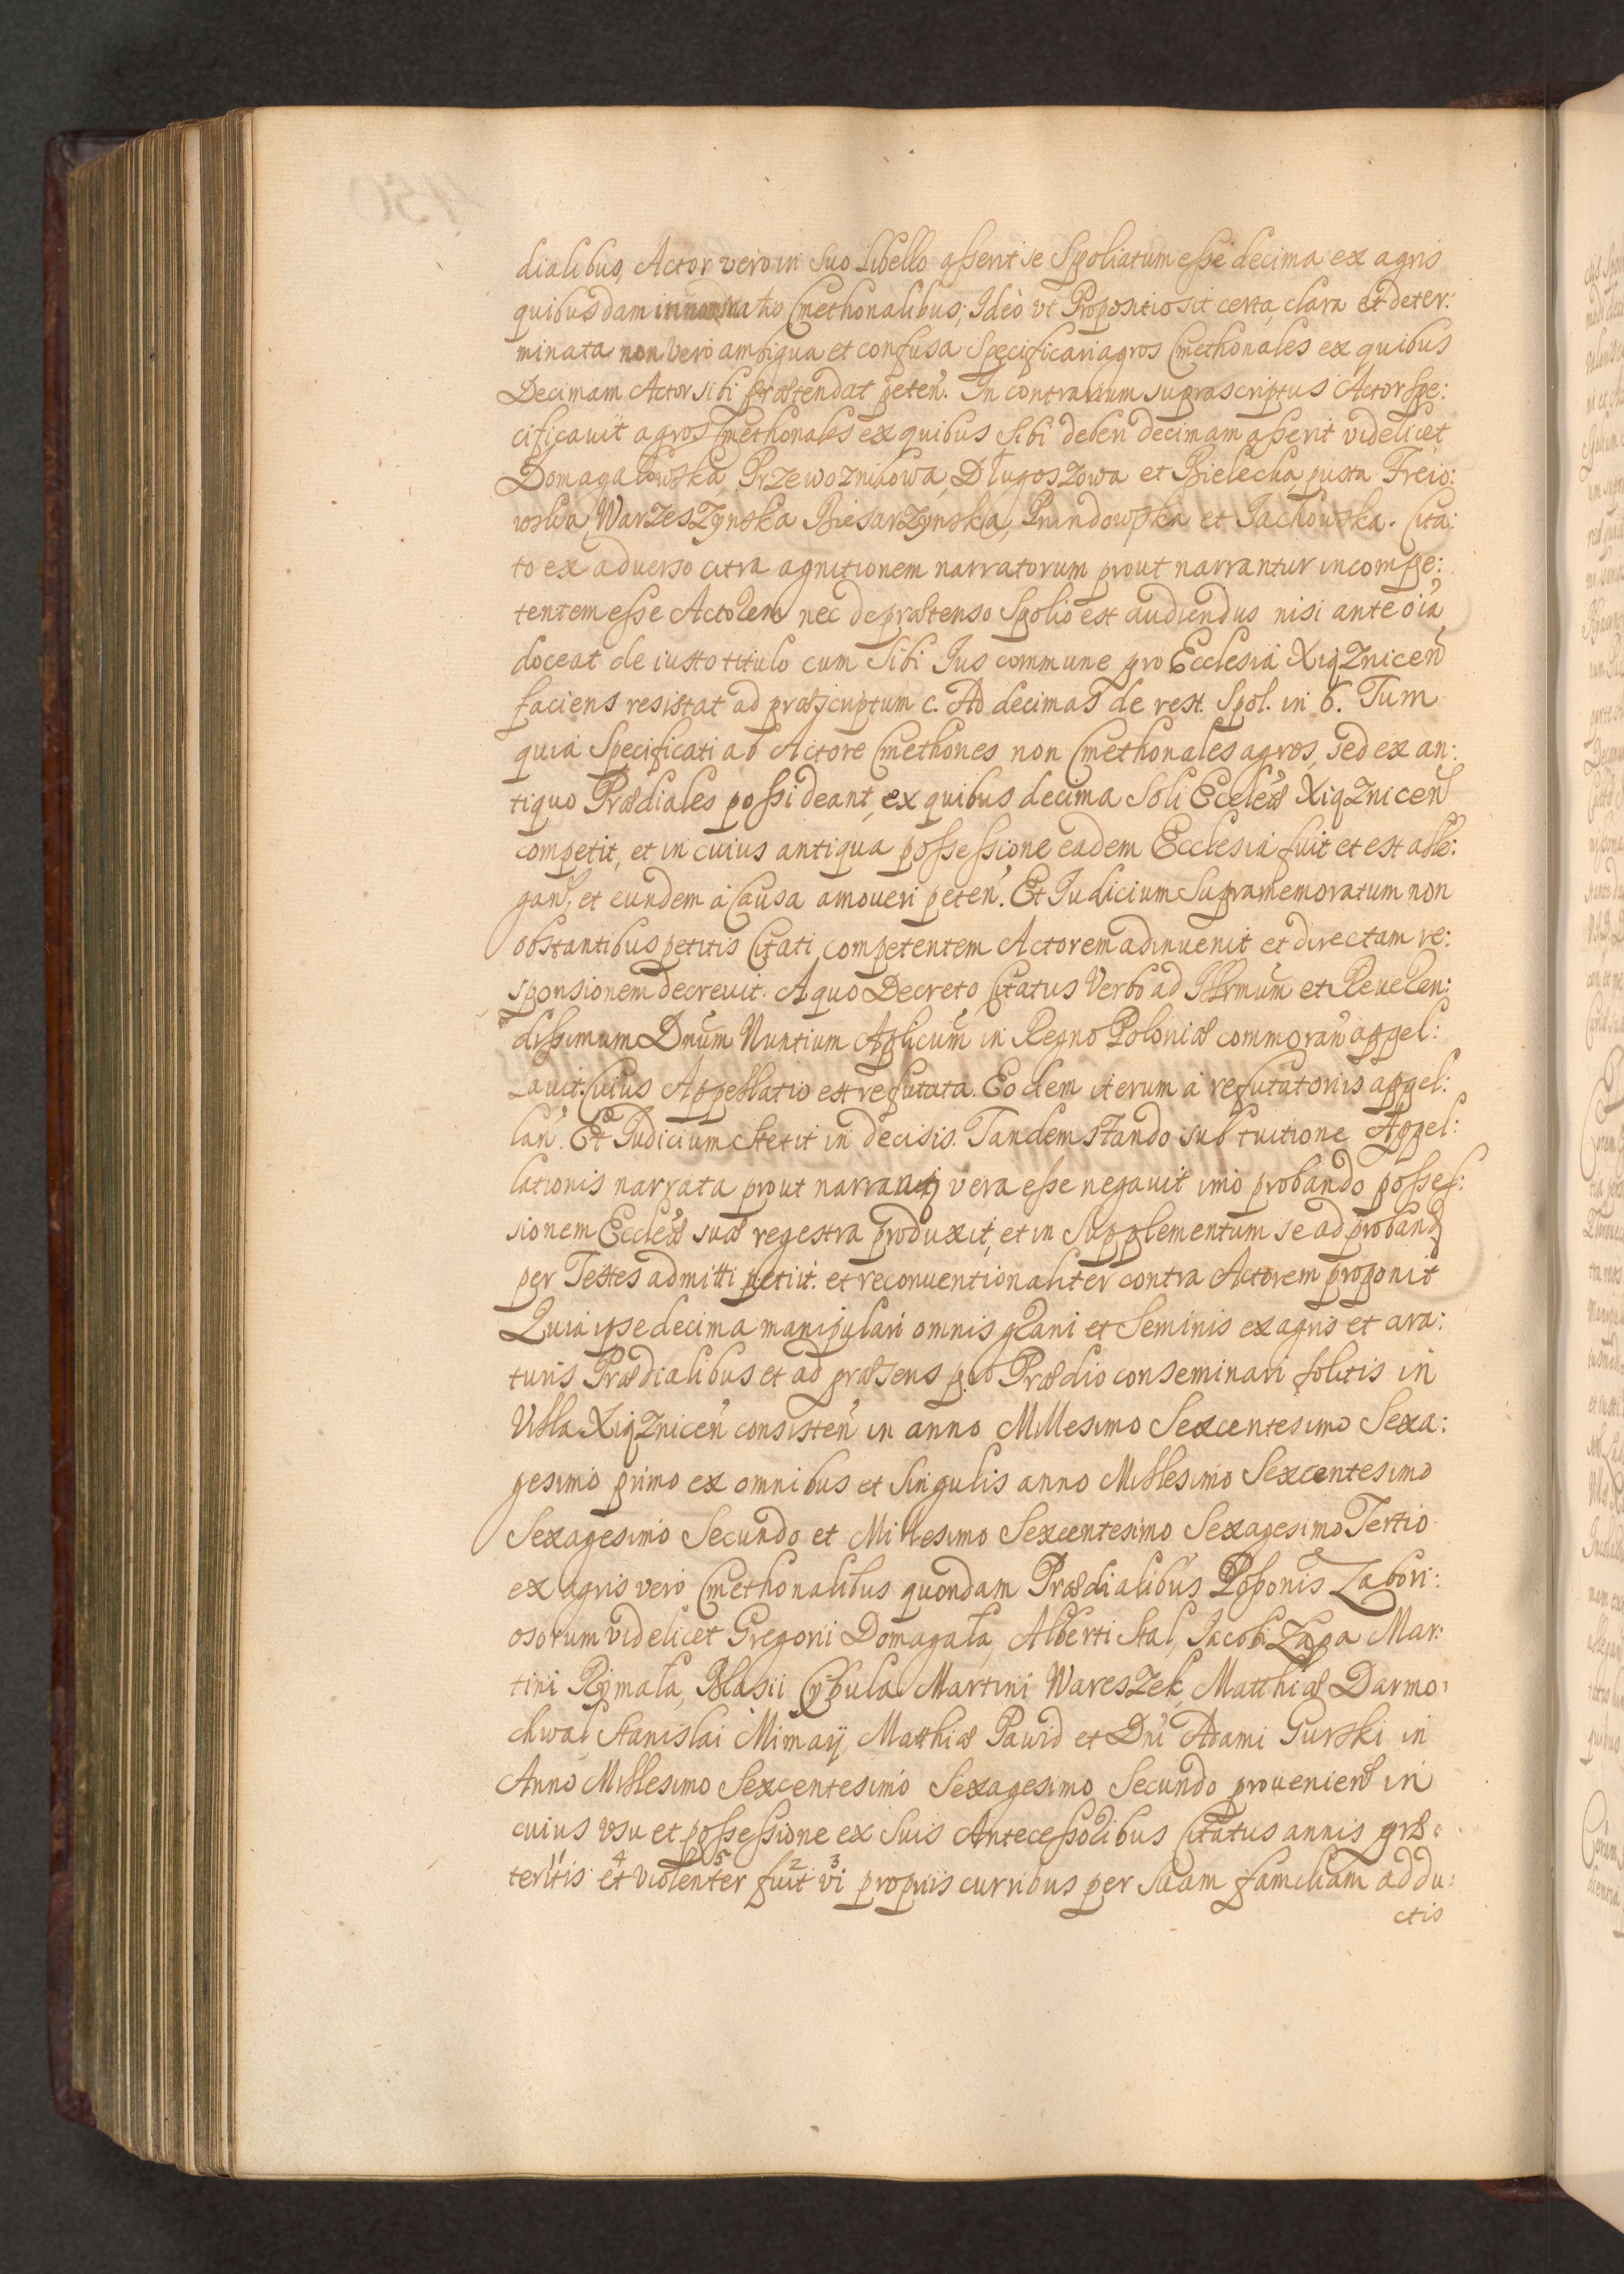 dialibus, Actor vero in suo libello asserit se Spoliatum esse decima ex agris
quibusdam innominatis Cmethonalibus; Ideò vt Propositio sit certa, clara et deter:
minata non vero ambigua et confusa Specificari agros Cmethonales ex quibus
Decimam Actor sibi prætendat peteñ. In contrarium suprascriptus Actor Spe:
cificauit agros Cmethonales ex quibus Sibi deberi decimam asserit videlicet
Domagałowska, Przewoznikowa, Długoszowa et Bielecka pusta
Warzeszynska Biesarzynska, et Jachowska. Cita:
to ex aduerso citra agnitionem narratorum prout narrantur incompe:
tentem esse Actorem nec de prætenso Spolio est audiendus nisi ante oīa
doceat de iusto titulo cum Sibi Jus commune pro Ecclesia Xiązniceñ
faciens resistat ad præscriptum c. Ad decimas de rest. Spol. in 6. Tum
quia Specificati ab Actore Cmethones non Cmethonales agros, sed ex an:
tiquo Prædiales possideant, ex quibus decima Soli Eccleæ Xiąznicen
competit, et in cuius antiqua possessione eadem Ecclesia fuit et est alle:
gan, et eundem à Causa amoueri peteñ. Et Judicium Supramemoratum non
obstantibus petitis Citati competentem Actorem adinuenit et directam re:
sponsionem decreuit. A quo Decreto Citatus Verbo ad Illrmum et Reueren:
dissimum Dnum Nuntium Aplicum in Regno Poloniæ commorañ appel:
lauit. Cuius Appellatio est refutata. Eodem iterum à refutatoriis appel:
lañ. Et Judicium stetit in decisis. Tandem stando sub tuitione Appel:
lationis narrata prout narrantur vera esse negauit imò probando posses:
sionem Eccleæ suæ regestra produxit, et in Supplementum se ad proband
per Testes admitti petiit. et reconuentionaliter contra Actorem proponit
Quia ipse decima manipulari omnis grani et Seminis ex agris et ara:
turis Prædialibus et ad præsens pro Prædio conseminari solitis in
Villa Xiąznicen consisteñ in anno Millesimo Sexcentesimo Sexa:
gesimo primo ex omnibus et Singulis anno Millesimo Sexcentesimo
Sexagesimo Secundo et Millesimo Sexcentesimo Sexagesimo Tertio
ex agris vero Cmethonalibus quondam Prædialibus Zabori:
osorum videlicet Gregorii Domagała, Alberti Stal, Jacobi Zapa Mar:
tini Rymała, Blasii Cybula Martini Wareszek, Matthiæ Darmo:
chwał Stanislai Mimaij, Matthiæ Pawid et Dñi Adami Gurski in
Anno Millesimo Sexcentesimo Sexagesimo Secundo prouenien in
cuius vsu et possessione ex Suis Antecessoribus Citatus annis præ:
teritis et violenter fuit vi propriis curribus per Suam familiam addu:
ctis